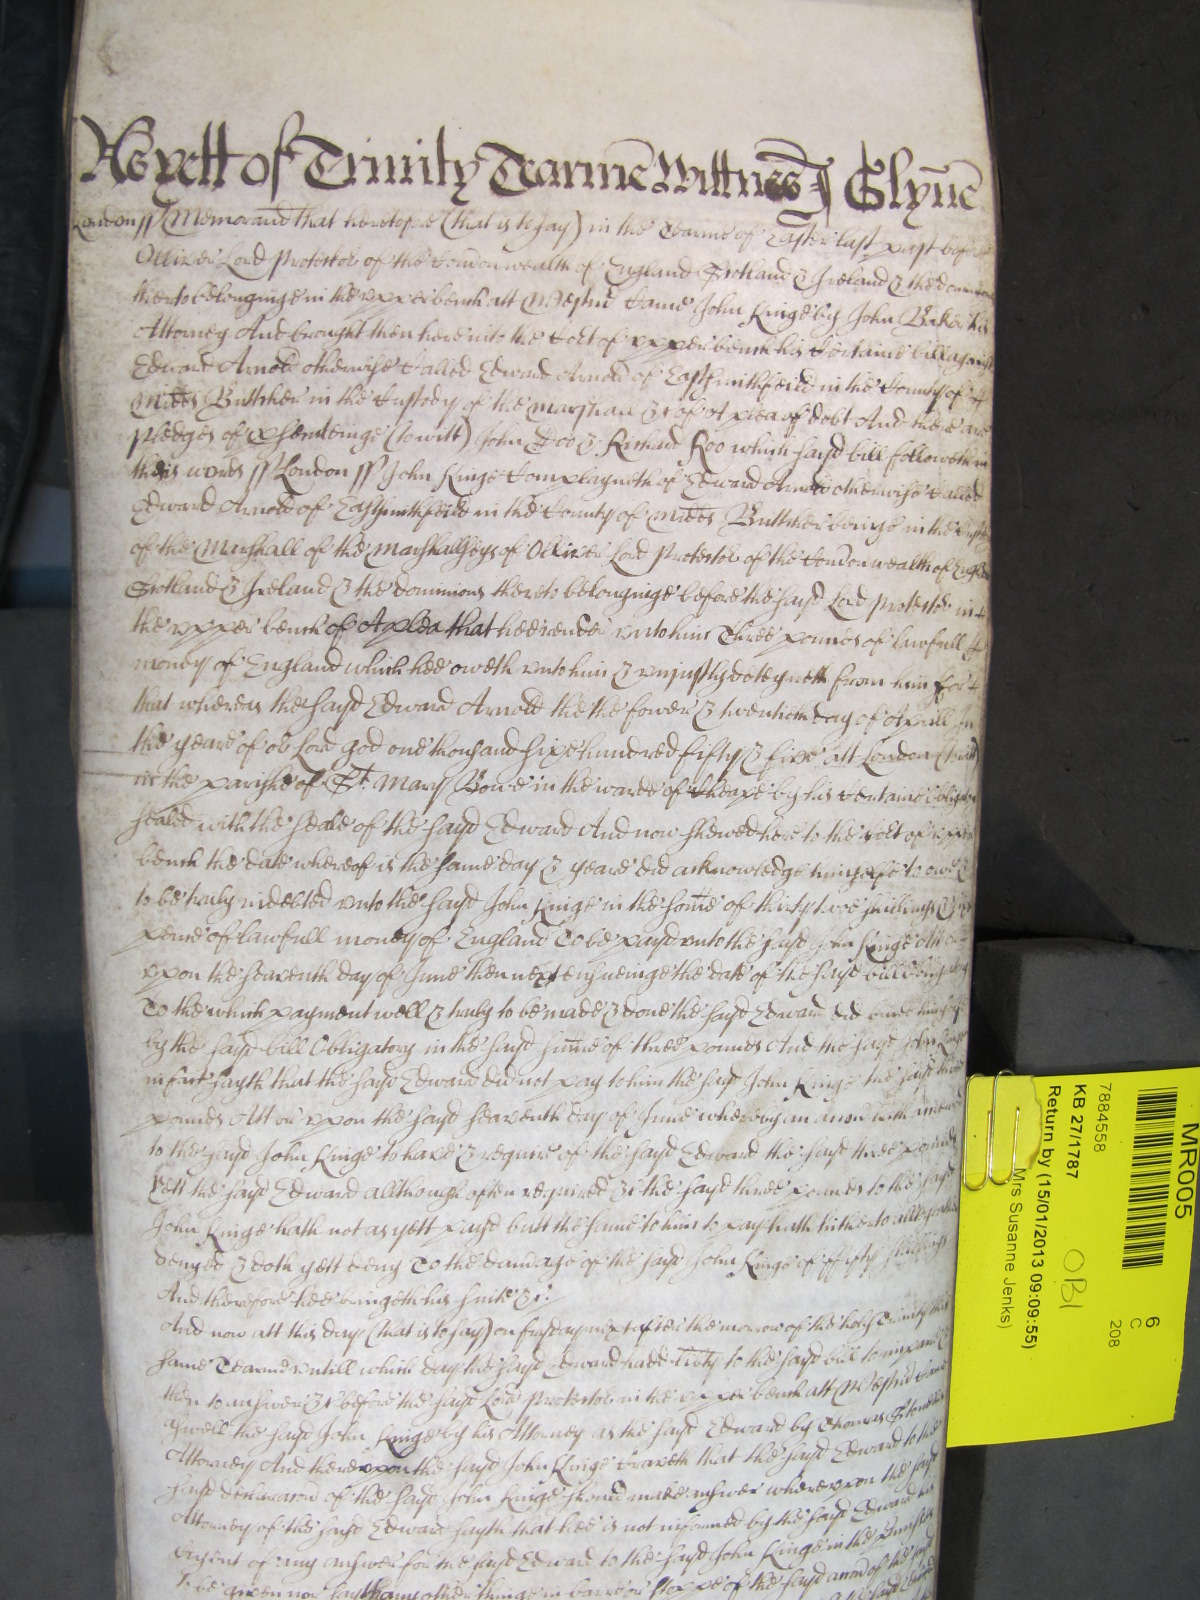 As yett of Trinity Tearme Wittnes J Glynne
London ss Memorand that heretofore (that is to say) in the Tearme of Easter last past before
Olliver Lord Protector of the Comonwealth of England Scotland & Ireland & the dominions
thereto belonginge in the upper bench att Westmr came John Kinge by John Baker his
Attorney And brought then here into the Cort of upper bench his certaine bill against
Edward Arnold otherwise called Edward Arnold of Eastsmithfeild in the County of
Midds Buttcher in the Custody of the Marshall &c of A plea of debt And there are
pledges of prosecuteinge (to witt) John Doo & Richard Roo which sayd bill followeth in
theis words ss London ss John Kinge complayneth of Edward Arnold otherwise called
Edward Arnold of Eastsmithfeild in the County of Midds Buttcher beinge in the Custody
of the Marshall of the Marshallseys of Olliver Lord Protector of the Comonwealth of England
Scotland & Ireland & the dominions thereto belonginge before the sayd Lord Protector in
the upper bench of A plea that hee render unto him Three pounds of lawfull
money of England which hee oweth unto him & unjustly deteyneth from him for
that whereas the sayd Edward Arnold the the fower & twentieth day of Aprill In
the yeare of or Lord god one thousand sixe hundred fifty & five att London (to witt)
in the parishe of St Mary Bowe in the warde of Cheape by his certaine bill obligatory
sealed with the seale of the sayd Edward And now shewed here to the Cort of upper
bench the date whereof is the same day & yeare did acknowledge himselfe to owe &
to be truly indebted unto the sayd John Kinge in the some of thirty twoe shillings &
pence of lawfull money of England To be payd unto the sayd John Kinge att or
uppon the seaventh day of June then next ensueinge the date of the sayd bill obligatory
To the which payment well & truly to be made & done the sayd Edward did binde himselfe
by the sayd bill Obligatory in the sayd sume of three pounds And the sayd John Kinge
in fact sayth that the sayd Edward did not pay to him the sayd John Kinge the sayd
pounds Att or uppon the sayd seaventh day of June whereby an accon did accrewe
to the sayd John Kinge to have & require of the sayd Edward the sayd three pounds
Yett the sayd Edward although often required &c the sayd three pounds to the sayd
John Kinge hath not as yett payd butt the same to him to pay hath hitherto alltogether
denyed & doth yett deny To the damage of the sayd John Kinge of fifty shillings
And therefore hee bringeth his suite &c:
And now att this day (that is to say) on fryday next after the morrow of the holy Trinity this
same Tearme untill which day the sayd Edward hadd liberty to the sayd bill to imparle &
then to answer &c before the sayd Lord Protector in the upper bench att Westmr came
aswell the sayd John Kinge by his Attorney as the sayd Edward by Thomas
Attorney And thereuppon the sayd John Kinge craveth that the sayd Edward to the
sayd declaracon of the sayd John Kinge should make answer whereuppon the sayd
Attorney of the sayd Edward sayth that hee is not informed by the sayd Edward his
Clyent of any answer for the sayd Edward to the sayd John Kinge in the premisses
to be given nor sayth any other thinge in barre or stoppe of the sayd accon of the sayd
MR005
6
C
208
7884558
KB 27/1787
OBI
Return by (15/01/2013 09:09:55)
Mrs Susanne Jenks)